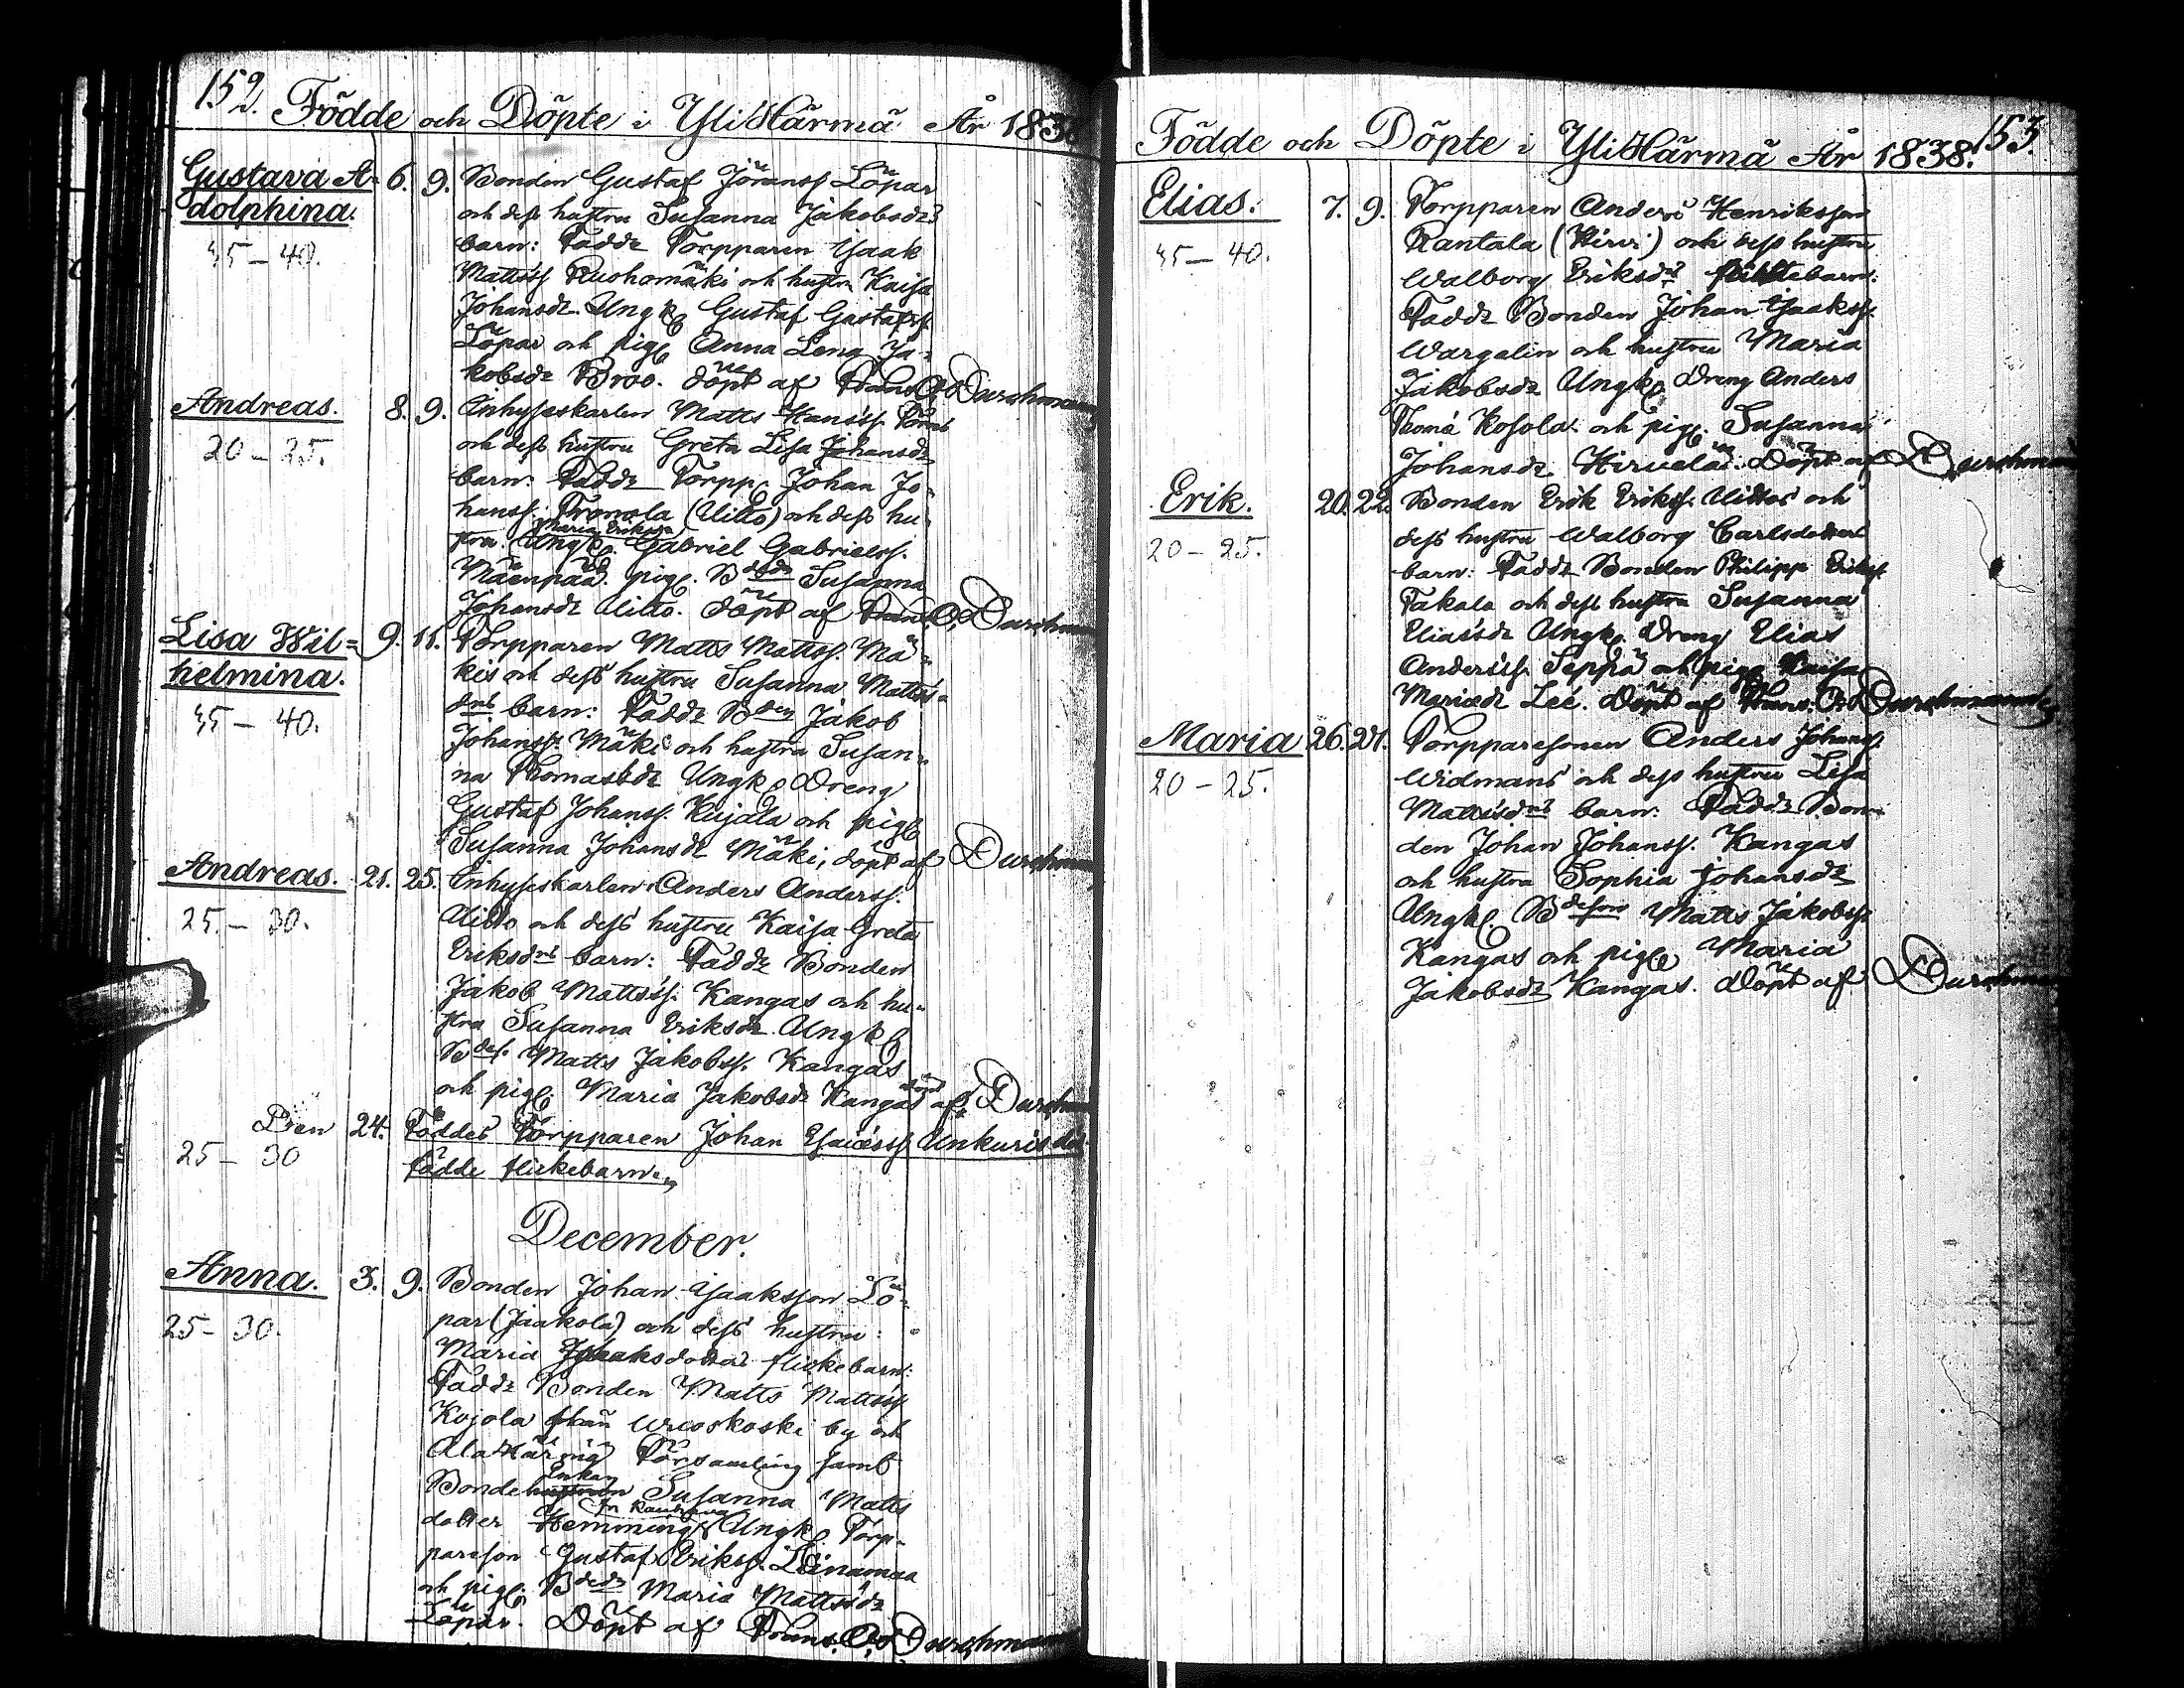 152. Födde och Döpte i YliHärmä År 1838.
Gustava A= 6. 9. Bonden Gustaf Jöranss. Löpar
dolphina. och dess hustru Susanna Jakobsdrs
35 – 40. barn: Faddr Torpparen Isaak
Mattsss. Ruohomäki och hustru Kaisa
Johansdr. Ungk. Gustaf Gustafss.
Löpar och pig. Anna Lena Ja-
kobsdr Broo. döpt af Frans O. Durchman
Andreas. 8. 9. Inhyseskarlen Matts Hanss.
20 – 25. och dess hustru Greta Lisa Johansdr
barn: Faddr Torpp. Johan Jo-
hanss. (Uitto) och dess hu-
stru Maria Eriksdr Ungk. Gabriel Gabrielss.
Mäenpää. pig. Bdedr Susanna
Johansdr Uitto. döpt af Frans O. Durchman
Lisa Wil= 9. 11. Torpparen Matts Mattss. Mä-
helmina. kis och dess hustru Susanna Matts-
35 – 40. drs barn: Faddr Bden Jakob
Johanss. Mäki och hustru Susan-
na Thomasdr Ungk. Dreng
Gustaf Johanss. Kujala och pig.
Susanna Johansdr Mäki, döpt af Durchman
Andreas. 21. 25. Inhyseskarlen Anders Anderss.
25. – 30. Uitto och dess hustru Kaisa Greta
Eriksdrs barn: Faddr Bonden
Jakob Mattsss. Kangas och hu-
stru Susanna Eriksdr. Ungk.
Bdes. Matts Jakobss. Kangas
och pig. Maria Jakobsdr Kangas döpt af Durchman
Den 24. Föddes Torpparen Johan Esaiæss. Unkuris död
25 – 30 födde flickebarn.
December.
Anna. 3. 9. Bonden Johan Isaaksson Lö-
25 – 30. par (Jaakola) och dess hustru:
Maria Isaaksdotters flickebarn:
Faddr Bonden Matts Mattsss.
Kojola från Wuoskoski by och
AlaHärmä Församling samt
Bonde Enkan Susanna Matts
dotter Hemming Ungk. Torp-
pareson Gustaf Erikss. Liinamaa
och pig. Bdedr Maria Mattsdr
Löpar. Döpt af Frans. O. Durchman
Födde och Döpte i YliHärmä År 1838. 153.
Elias. 7. 9. Torpparen Anders Henriksson
35 – 40. Rantala (Hirvi) och dess hustru
Walborg Eriksdrs barn:
Faddr Bonden Johan Isaakss.
Wargalin och hustru Maria
Jakobsdr Ungk. Dreng Anders
Thomæ Kosola och pig. Susanna
Johansdr Hirvelä. Döpt af Durchman
Erik. 20. 22. Bonden Erik Erikss. Uittos och
20 – 25. dess hustru Walborg Carlsdotters
barn: Faddr Bonden Philipp Erikss.
Takala och dess hustru Susanna
Eliasdr Ungk. Dreng Elias
Andersss. Seppä och pig. Kaisa
Mariædr Lee. Döpt af Frans. O. Durchman
Maria 26. 27. Torpparesonen Anders Johanss.
20 – 25. Widmans och dess hustru Lisa
Mattsdrs barn: Faddr Bon-
den Johan Johanss. Kangas
och hustru Sophia Johansdr
Ungk. Bdeson Matts Jakobss.
Kangas och pig. Maria
Jakobsdr Kangas. Döpt af Durchman